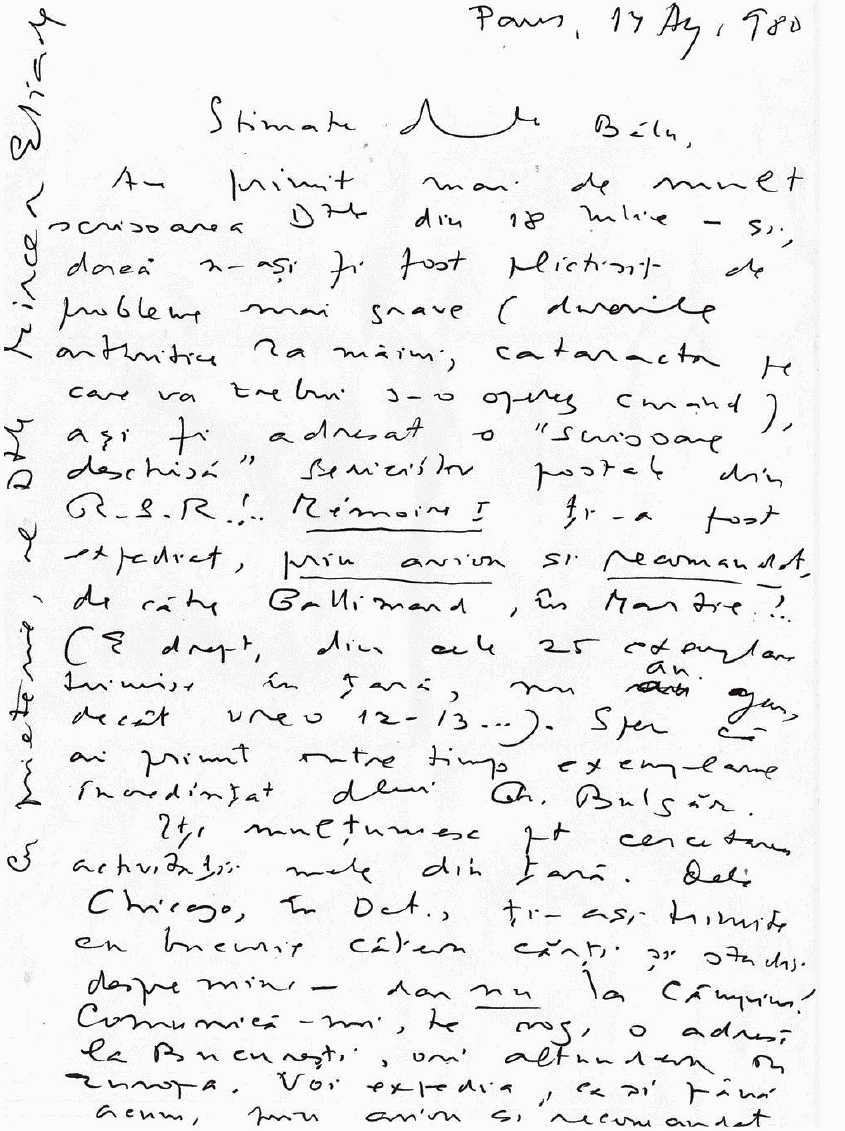 Paris, 17 Aug. 980
Stimate d-le Bălu,
Am primit mai de mult
scrisoarea Dtle din 18 Iulie – și,
dacă n-ași fi fost plictisit de
probleme mai grave (durerile
arthritice la mâini, cataracta pe
care va trebui s-o operez curând),
ași fi adresat o "scrisoare
deschisă" serviciilor postale din
R.S.R.!.. Mémoire I ți-a fost
expediat, prin avion si recomandat,
de către Gallimard, în Martie!..
(E drept, din cele 25 exemplare
trimise în țară, nu au ajuns
decât vreo 12-13...). Sper că
ai primit între timp exemplarul
încredințat dlui Gh. Bulgăr.
Îți mulțumesc pt cercetarea
activității mele din țară. Dela
Chicago, în Oct., ți-ași trimite
cu bucurie câteva cărți și studii
despre mine – dar nu la Câmpina!
Comunică-mi, te rog, o adresă
la București, ori altundeva în
Europa. Voi expedia, ca și până
acum, prin avion si recomandat
Cu prietenie, al Dtle Mircea Eliade